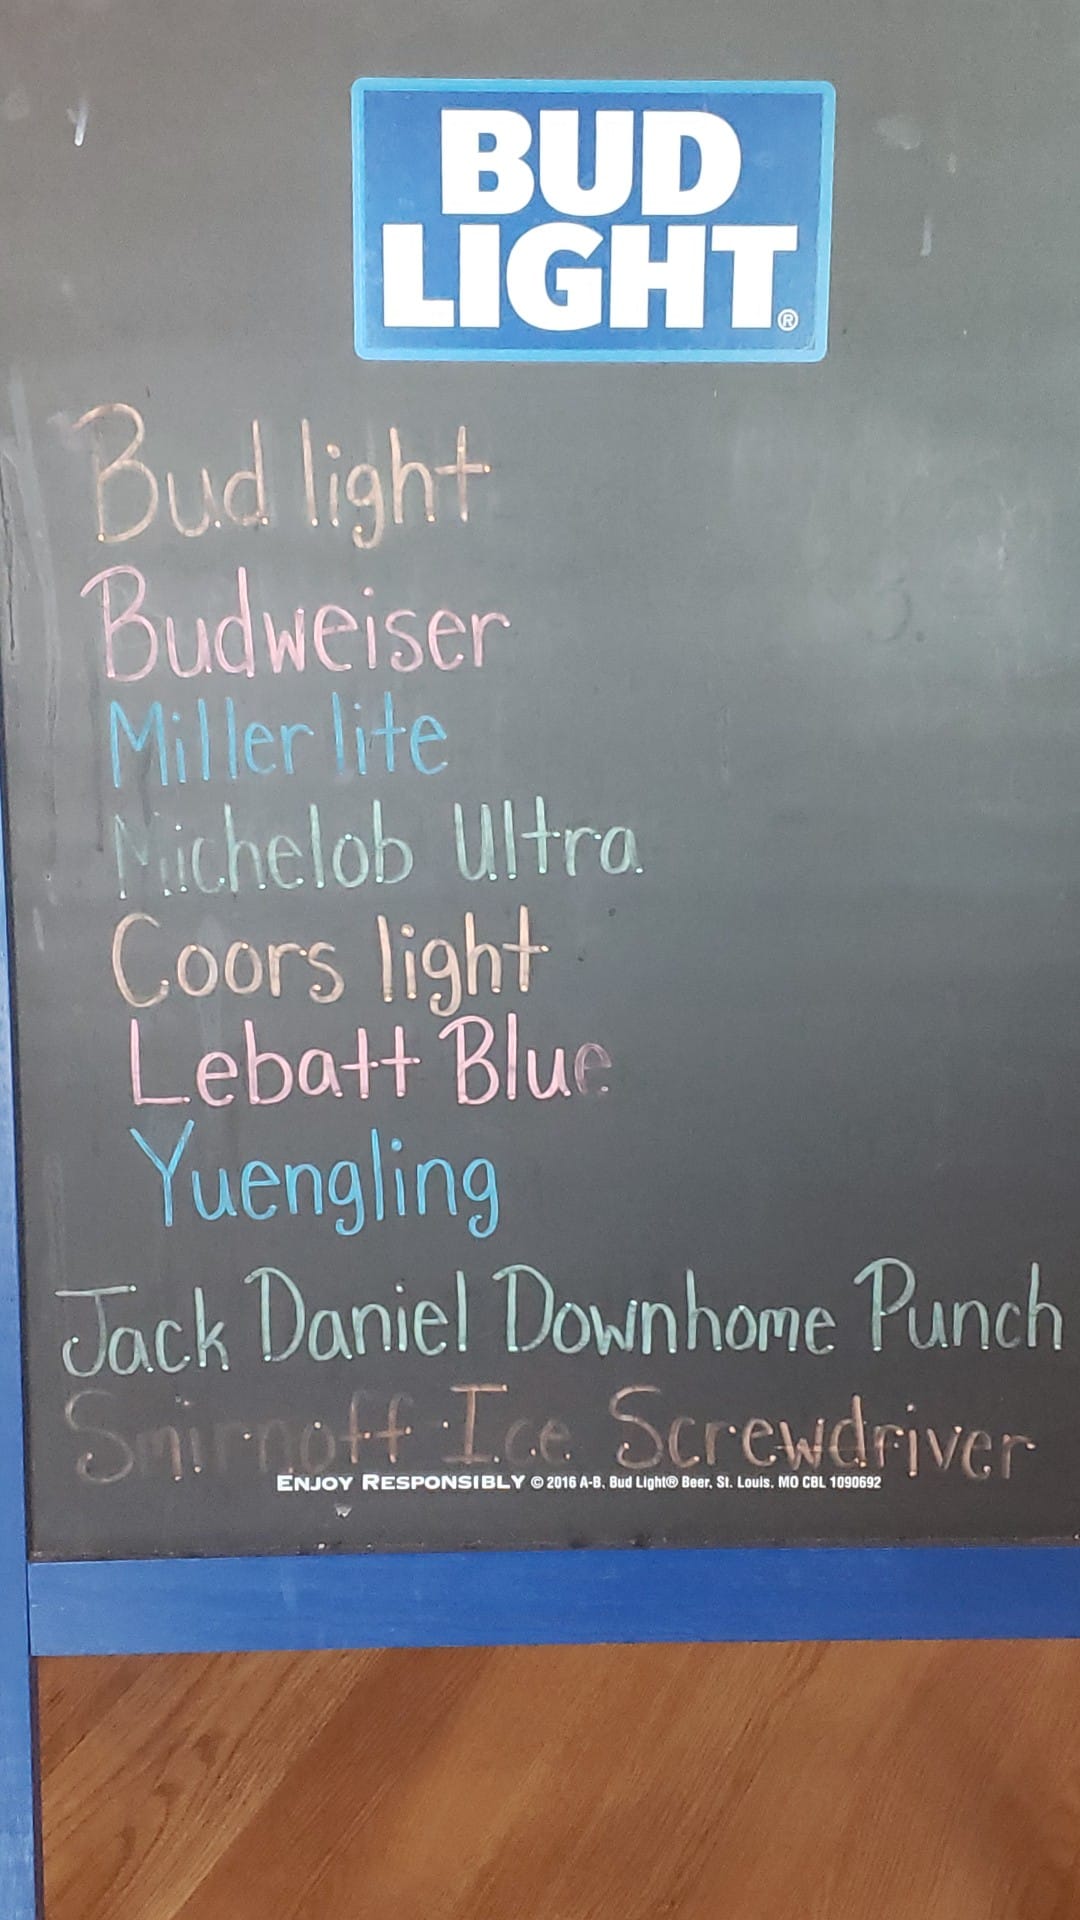 BUD
LIGHT®
Bud light
Budweiser
Miller lite
Michelob Ultra
Coors light
Lebatt Blue
Yuengling
Jack Daniel Downhome Punch
Smirnoff Ice Screwdriver
ENJOY RESPONSIBLY © 2016 A-B, Bud Light® Beer, St. Louis, MO CBL 1090692